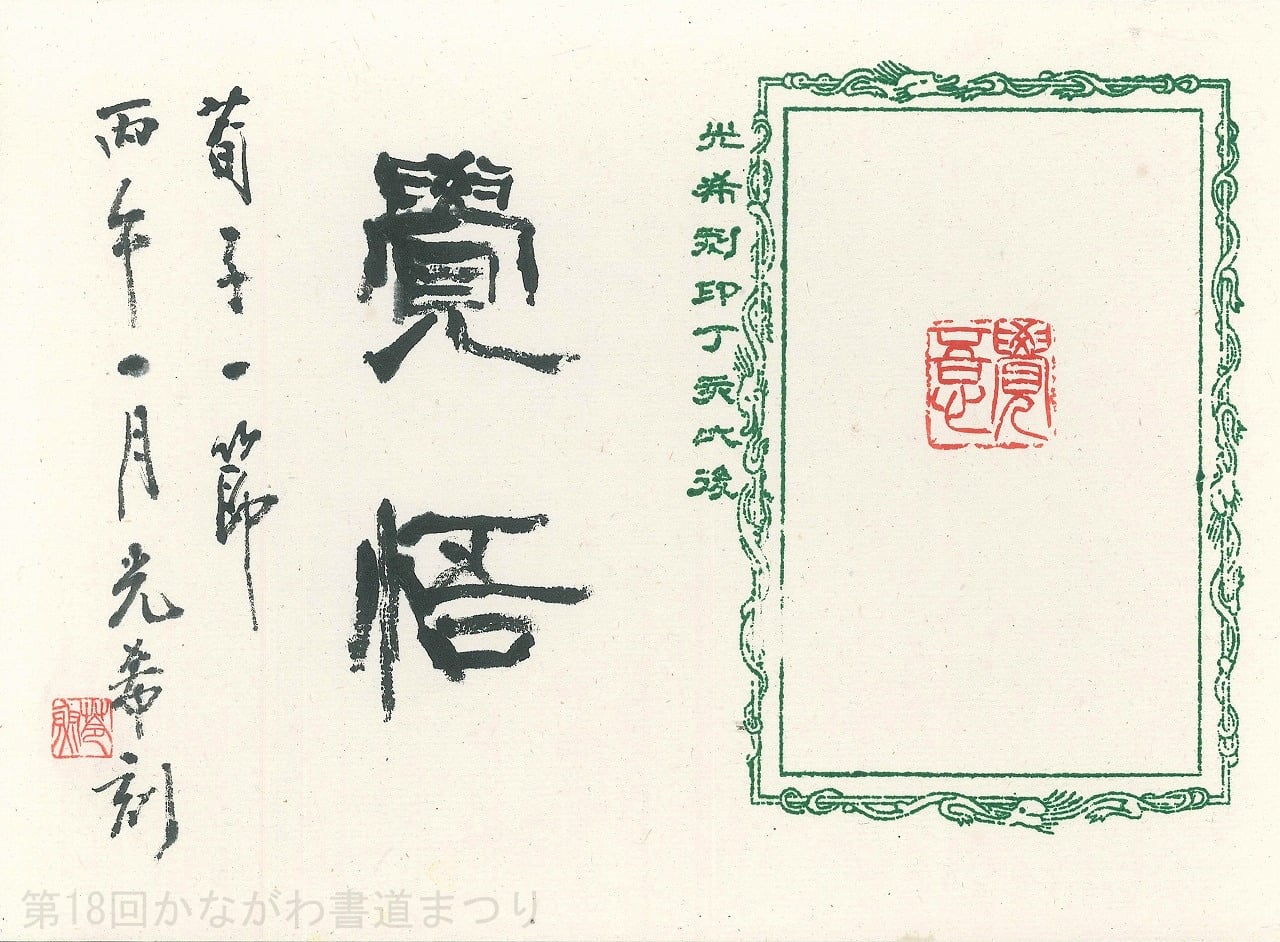 覺悟
光希刻印丁亥以後
覺悟
荀子一節
丙午一月光希刻
第18回かながわ書道まつり